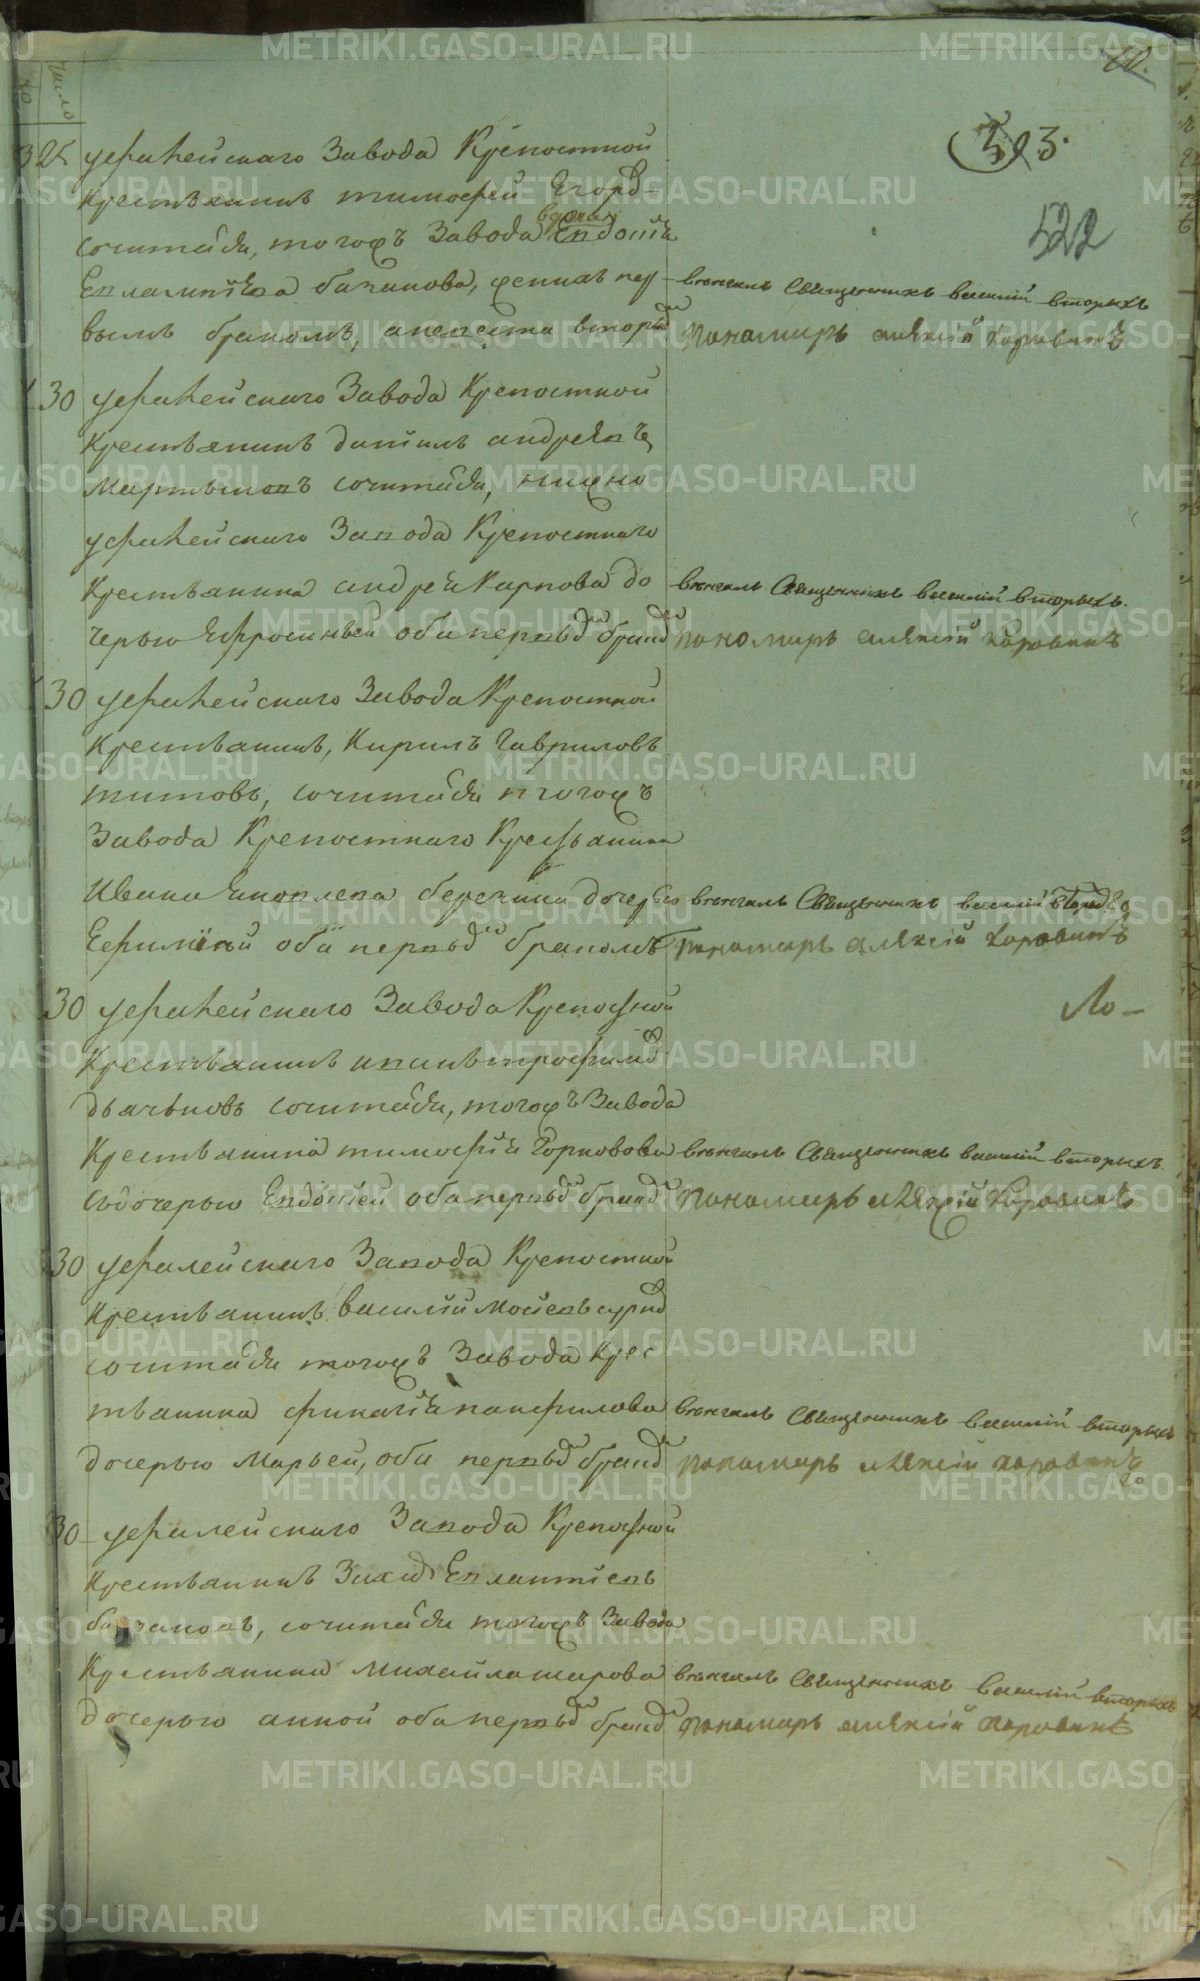 число
523.
522
25 уфалейскаго Завода Крепостной
крестьянинъ тимофей Егоро
сочитался, тогожъ Завода вдова Евдокия
Евлампиева бачинова, женихъ пер
вымъ бракомъ, аневеста вторы
венчалъ Священникъ василий вторыхъ
пономарь алексий Коровинъ
30 уфалейскаго Завода Крепостной
Крестьянинъ данилъ андреевъ
Мартыновъ сочитался, нижно
уфалейскаго Завода Крепостнаго
Крестьянина андрея Карпова до
черью Ефросиньей оба первыд бракд
венчалъ Священникъ василий вторыхъ.
пономарь алексий Коровинъ
30 уфалейскаго Завода Крепостной
Крестьянинъ, Кирилъ Гавриловъ
титовъ, сочитался тогожъ
Завода Крепостнаго Крестьянина
Ивана Яковлева березина дочерью
Ефимией оба первыд бракомъ
венчалъ Священникъ василий
пономарь алексий Коровинъ
30 уфалейскаго Завода Крепостной
Крестьянинъ иванъ трофимо
дьячьковъ сочитался, тогожъ Завода
Крестьянина тимофея
сдочерью Евдокией оба первыд бракд
венчалъ Священникъ василий вторыхъ.
пономарь алексий Коровинъ
30 уфалейскаго Завода Крепостной
Крестьянинъ василий Мосеевъ
сочитался тогожъ Завода Крес
тьянина панфилова
дочерью Марьей, оба первыд бракд
венчалъ Священникъ василий вторыхъ
пономарь алексий Коровинъ
30 уфалейскаго Завода Крепостной
Крестьянинъ Захар Евлантиевъ
сочитался тогожъ Завода
Крестьянина Михайла шарова
дочерью анной оба первыд бракд
венчалъ Священникъ василий вторыхъ
пономарь алексий Коровинъ
METRIKI.GASO-URAL.RU